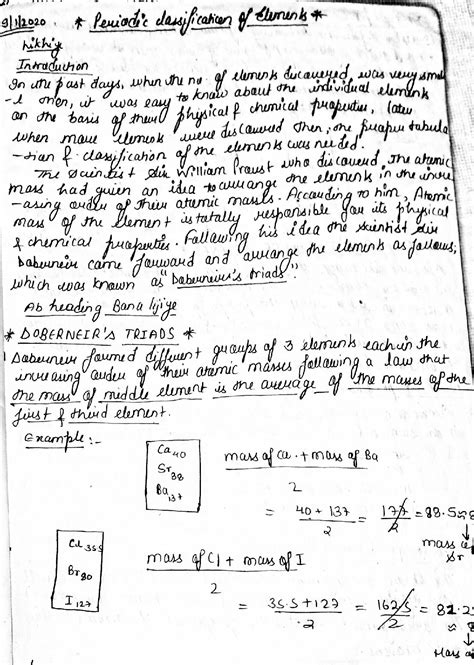 9/1/2020 * Periodic classification of Elements *
Introduction
In the past days, when the no of elements discovered, was very small
-l then, it was easy to know about the individual elements
on the basis of their physical & chemical properties, later
when more elements were discovered then, the proper tabula
-tion & classification of the elements was needed.
The Scientist Sir William Proust who discoverd, the atomic
mass had given an idea to arrange the elements in the incre
-asing order of their atomic masses. According to him, Atomic
mass of the element is totally responsible for its physical
& chemical properties. Following his idea the scientist Sir
Daberneir came forward and arrange the elements as follows,
which was known as "Daberneir's Triads".
Ab heading Bana lijiye
* DOBERNEIR'S TRIADS *
Daberneir formed different groups of 3 elements each in the
increasing order of their atomic masses following a law that
the mass of middle element is the average of the masses of the
first & third element.
Example :-
Ca 40
Sr 88
Ba 137
mass of Ca + mass of Ba
2
= 40 + 137 / 2 = 177 / 2 = 88.5 ≈ 8
mass of
Sr
Cl 35.5
Br 80
I 127
mass of Cl + mass of I
2
= 35.5 + 127 / 2 = 162.5 / 2 = 81.2
Mass